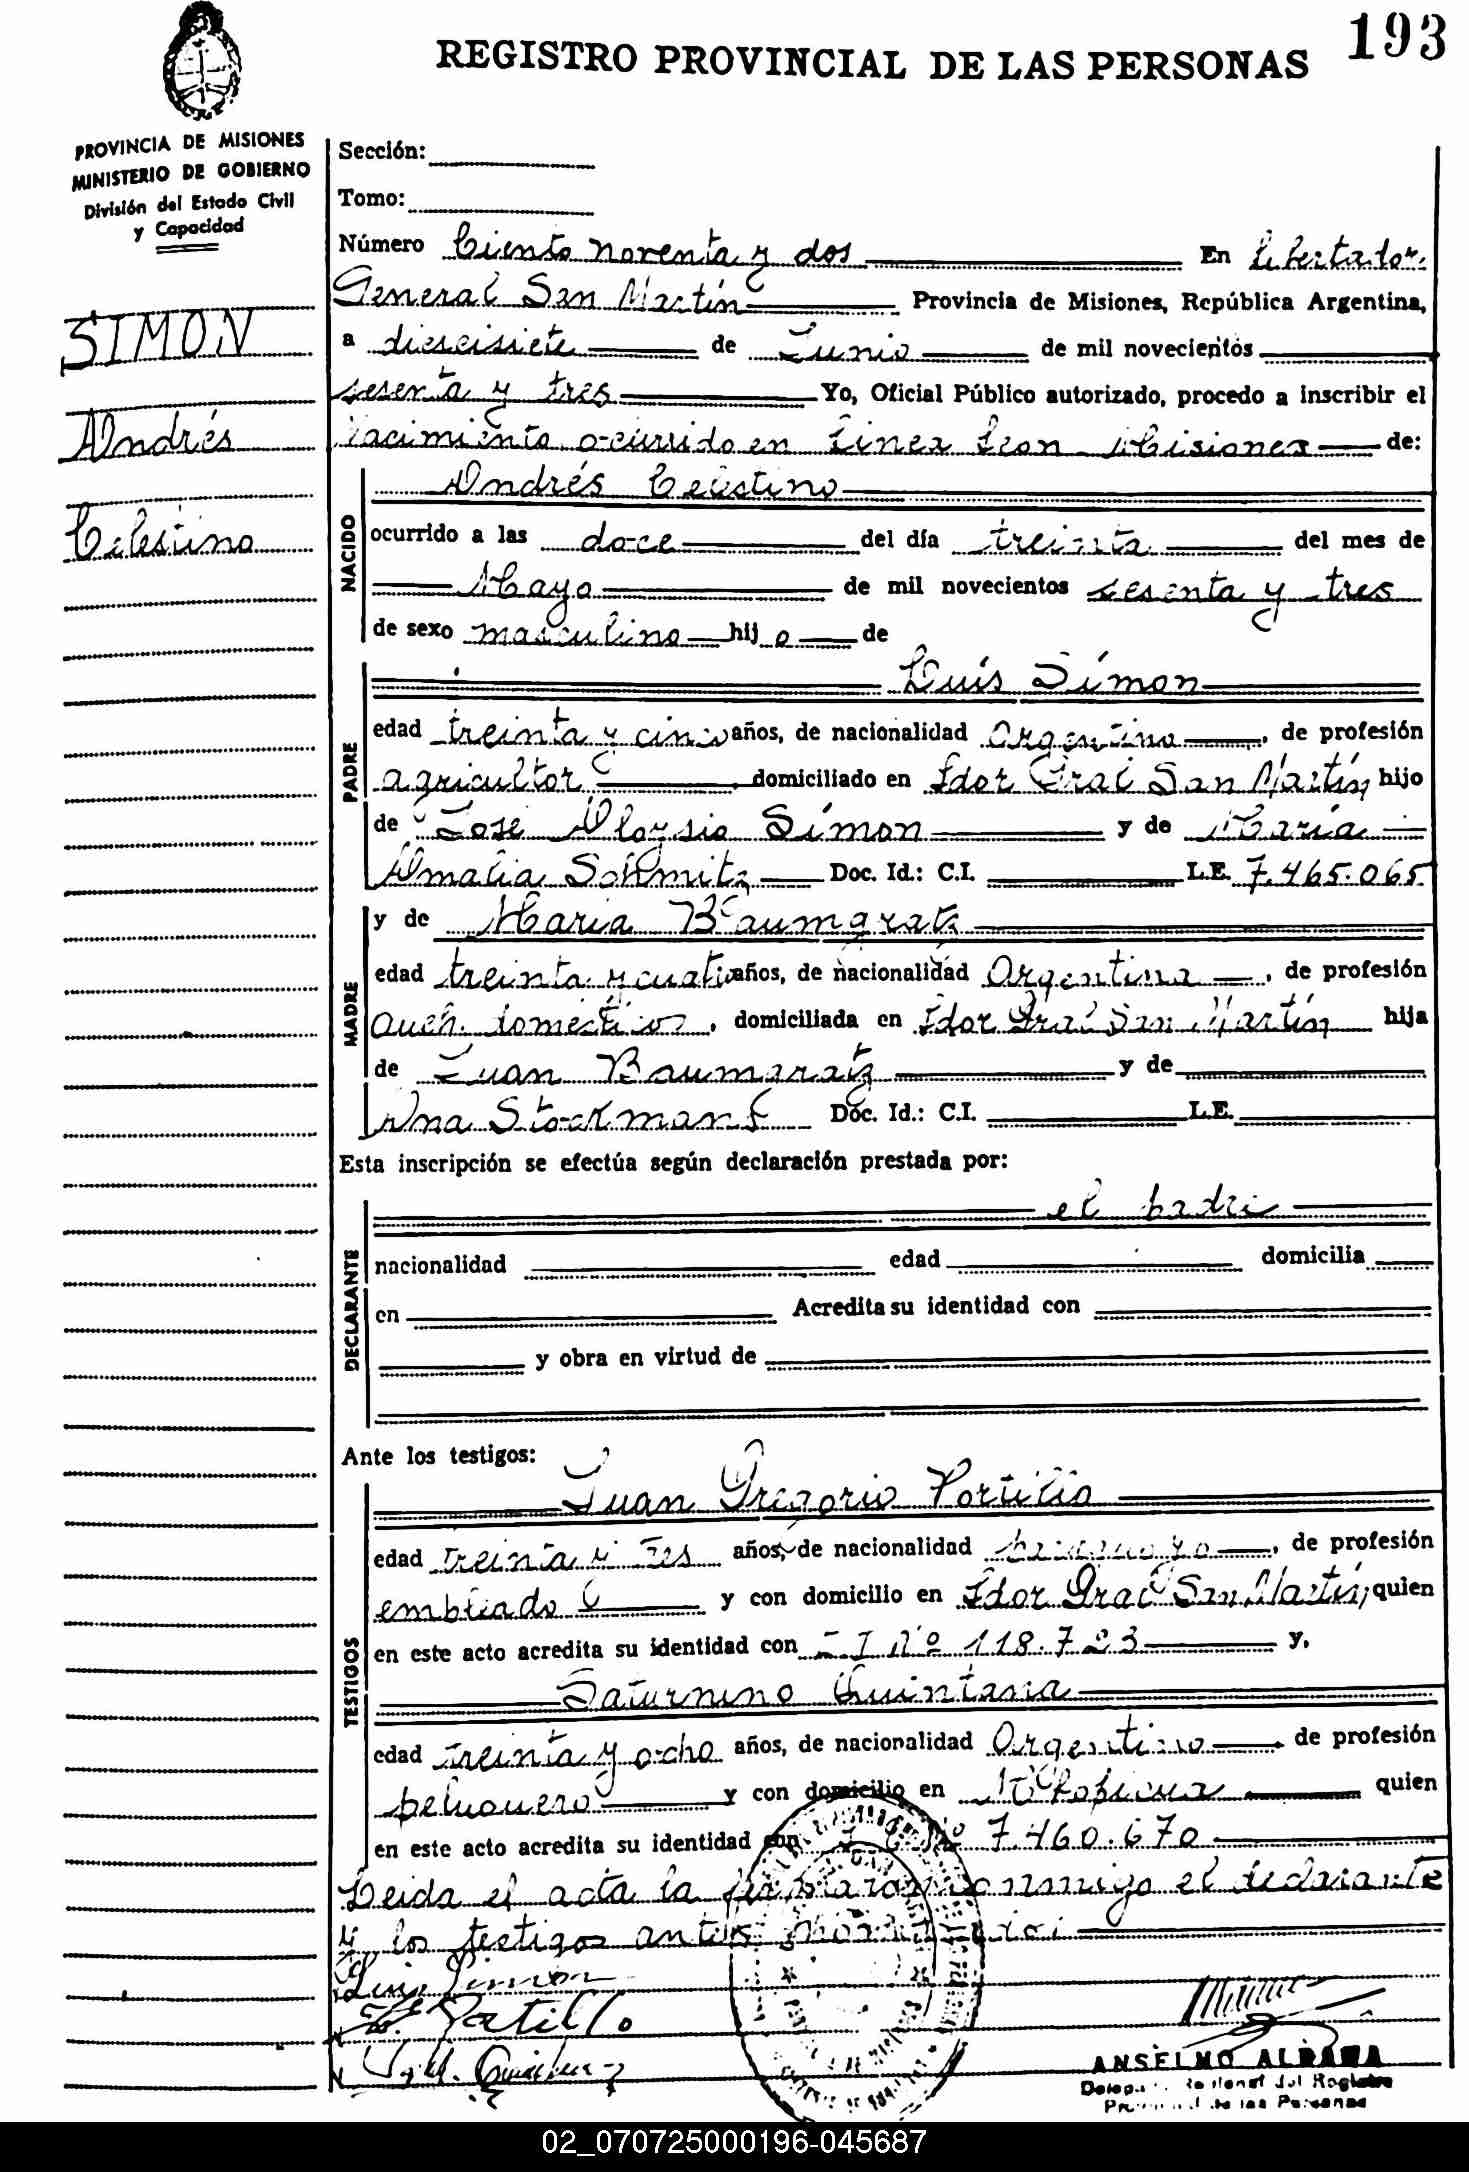 193
REGISTRO PROVINCIAL DE LAS PERSONAS
PROVINCIA DE MISIONES
MINISTERIO DE GOBIERNO
División del Estado Civil
y Capacidad
SIMON
Andrés
Celestino
Sección:
Tomo:
Número Ciento noventa y dos En Libertador
General San Martín Provincia de Misiones, República Argentina,
a dieseisiete de Junio de mil novecientos
sesenta y tres Yo, Oficial Público autorizado, procedo a inscribir el
nacimiento ocurrido en Linea Leon Misiones de:
NACIDO
Andrés Celestino
ocurrido a las doce del día treinta del mes de
Mayo de mil novecientos sesenta y tres
de sexo masculino hijo de
PADRE
Luis Simon
edad treinta y cinco años, de nacionalidad Argentino, de profesión
agricultor, domiciliado en Ldor Gral San Martín hijo
de José Aloysio Simon y de María
Amalia Schmitz Doc. Id.: C.I. L.E. 7.465.065
MADRE
y de Maria Baumgratz
edad treinta y cuatro años, de nacionalidad Argentina, de profesión
queh. domésticos, domiciliada en Ldor Gral San Martín hija
de Juan Baumgratz y de
Ana Stockmans Doc. Id.: C.I. L.E.
Esta inscripción se efectúa según declaración prestada por:
DECLARANTE
el padre
nacionalidad edad domicilia
en Acredita su identidad con
y obra en virtud de
Ante los testigos:
TESTIGOS
Juan Gregorio Portillo
edad treinta y tres años, de nacionalidad, de profesión
empleado y con domicilio en Ldor Gral San Martín, quien
en este acto acredita su identidad con C I Nº 118.723 y,
Saturnino Quintana
edad treinta y ocho años, de nacionalidad Argentino, de profesión
peluquero y con domicilio en quien
en este acto acredita su identidad con Nº 7.460.670
Leida el acta la firmaron conmigo el declarante
y los testigos antes
Luis Simon
Portillo
ANSELMO ALDANA
Registro
de las Personas
02_070725000196-045687